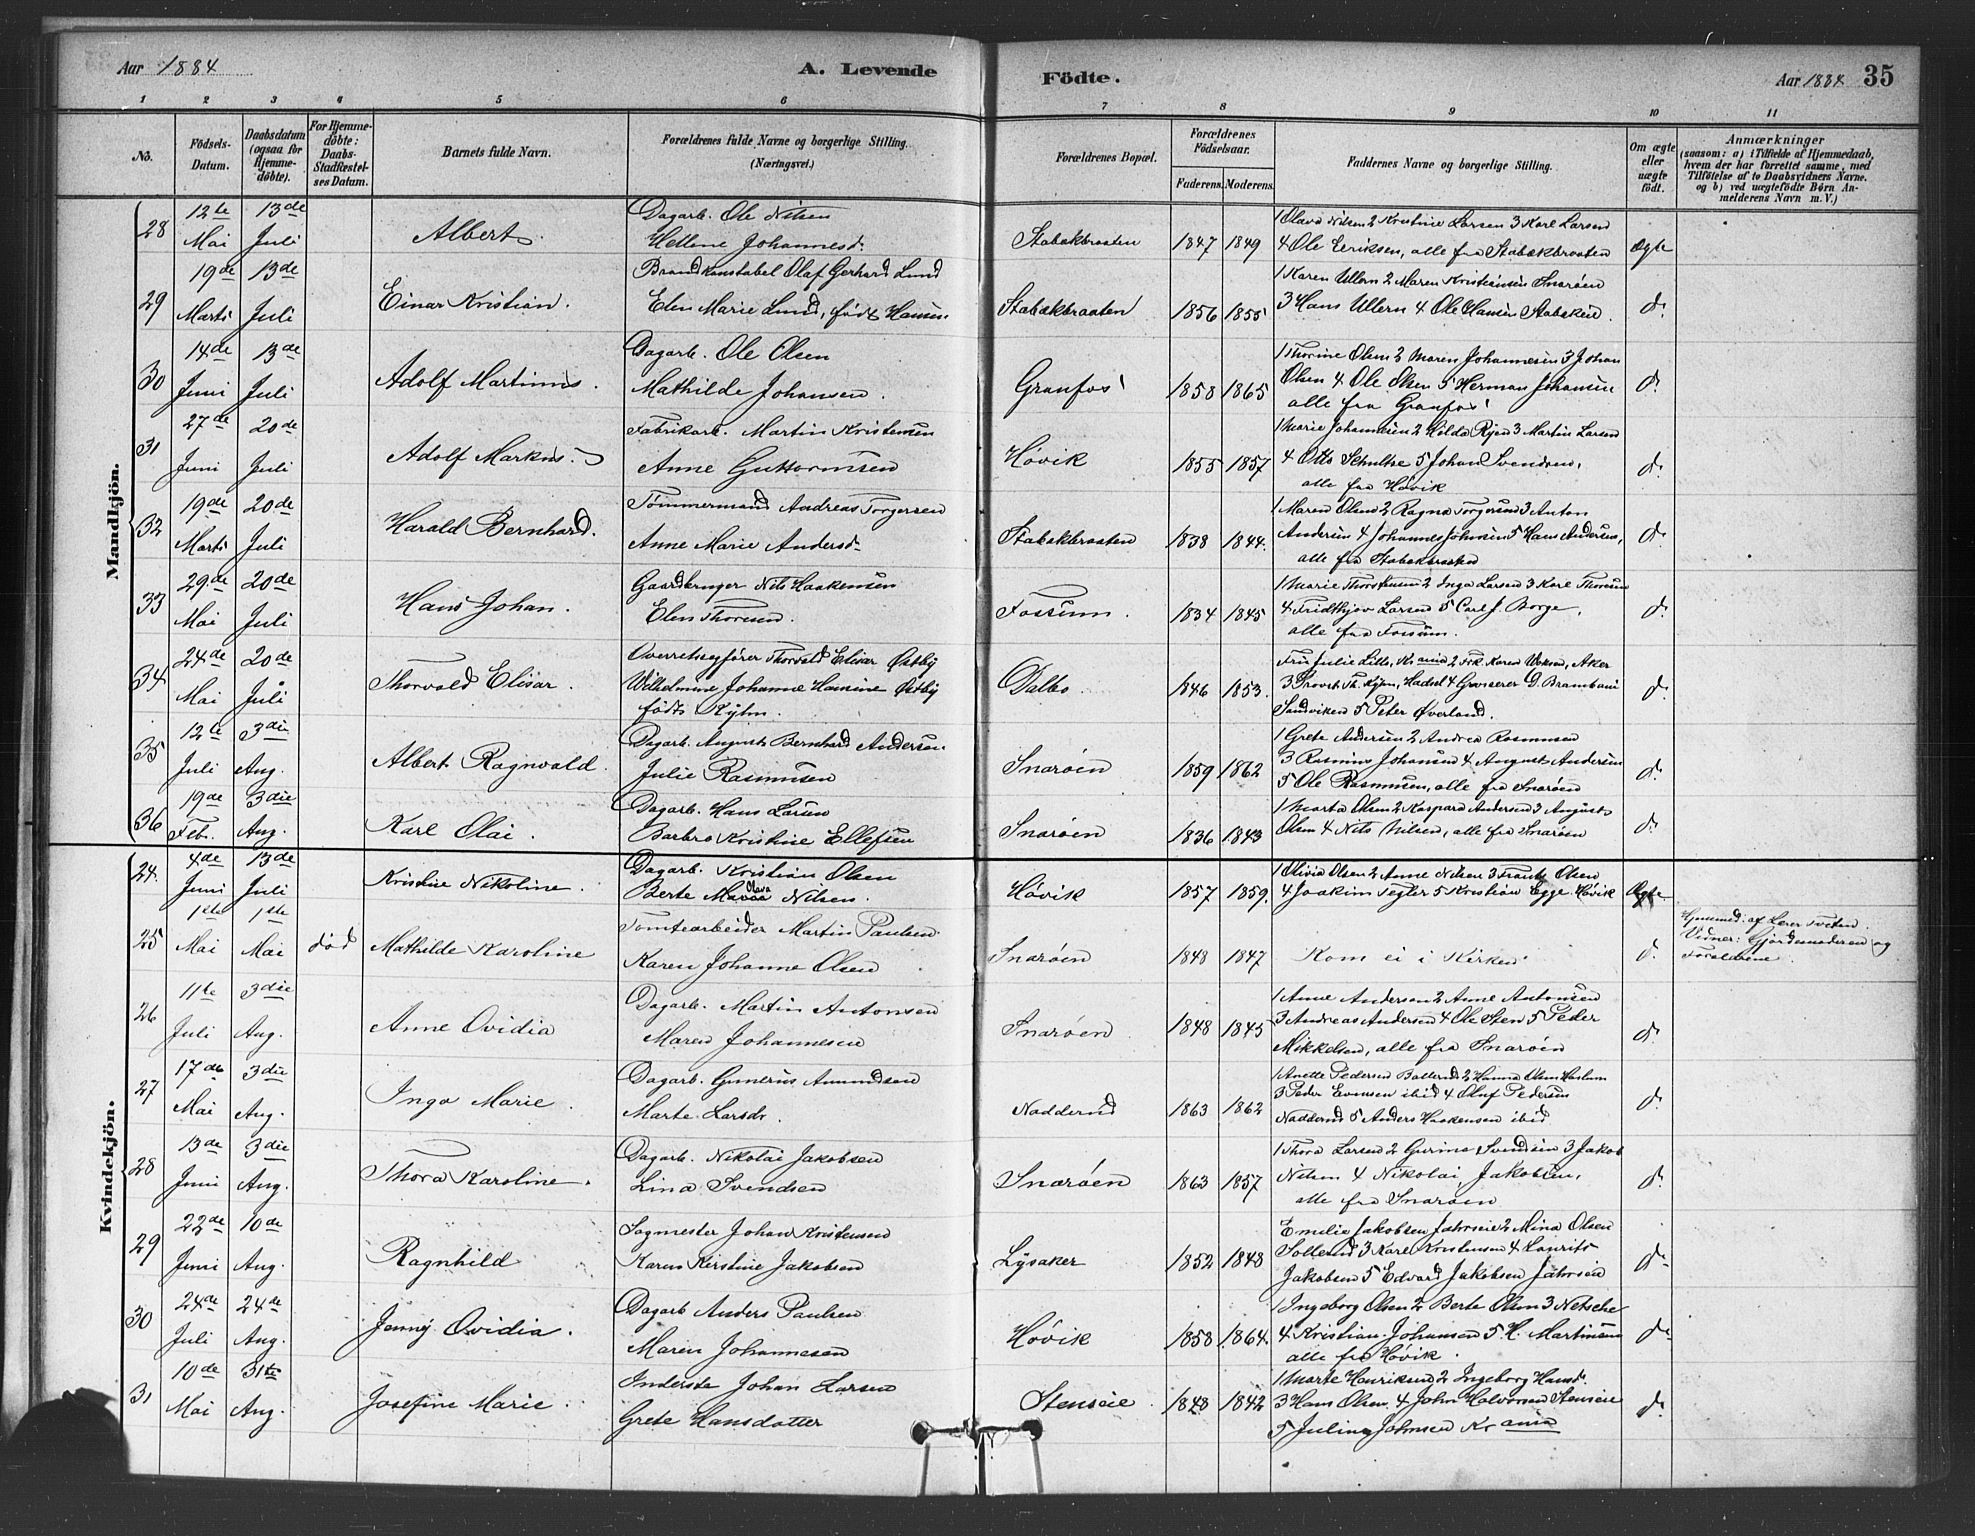 Aar 1884
A. Levende
Födte.
Aar 1884 35
1 2 3 4 5 6 7 8 9 10 11
No.
Födsels-Datum.
Daabsdatum (ogsaa for Hjemmedöbte).
For Hjemmedöbte: Daabs-Stadfæstelses Datum.
Barnets fulde Navn.
Forældrenes fulde Navne og borgerlige Stilling. (Næringsvei.)
Forældrenes Bopæl.
Forældrenes Födselsaar.
Faderens. Moderens.
Faddernes Navne og borgerlige Stilling.
Om ægte eller uægte födt.
Anmærkninger
(saasom: a) i Tilfælde af Hjemmedaab, hvem der har forrettet samme, med Tilföielse af to Daabsvidners Navne. og b) ved uægtefödte Börn Anmelderens Navn m. V.)
Mandkjön.
28 12te Mai 13de Juli Albert. Dagarb. Ole Nilsen
Hellene Johannesd. Stabækbraaten 1847 1849 1 Olava Nilsen 2 Kristine Larsen 3 Karl Larsen
4 Ole Eriksen, alle fra Stabækbraaten ægte
29 19de Marts 13de Juli Einar Kristian. Brandkonstabel Olaf Gerhard Lund
Elen Marie Lund, født Hansen. Stabækbraaten 1856 1855 1 Karen Ullern 2 Maren Kristiansen Snarøen
3 Hans Ullern 4 Ole Hansen Stabækken. do
30 14de Juni 13de Juli Adolf Martinus. Dagarb. Ole Olsen
Mathilde Johansen. Granfos 1858 1865 1 Thorine Olsen 2 Maren Johannesen 3 Johan
Olsen 4 Ole Olsen 5 Herman Johansen
alle fra Granfos do
31 27de Juni 20de Juli Adolf Markus. Fabrikarb. Martin Kristensen
Anne Guttormsen Høvik 1855 1857 1 Marie Johannesen 2 Hilda Ryen 3 Martin Larsen
4 Otto Schultze 5 Johan Svendsen,
alle fra Høvik do
32 19de Marts 20de Juli Harald Bernhard. Tømmermand Andreas Torgersen
Anne Marie Andersd. Stabækbraaten 1838 1844. 1 Maren Olsen 2 Ragna Torgersen 3 Anton
Andersen 4 Johannes Johnsen 5 Hans Andersen,
alle fra Stabækbraaten do
33 29de Mai 20de Juli Hans Johan. Gaardbruger Nils Haakensen
Elen Thoresen. Fossum. 1834 1845 1 Marie Thorstensen 2 Inga Larsen 3 Karl Thoresen
4 Fridthjov Larsen 5 Carl J. Borge,
alle fra Fossum. do
34 24de Mai 20de Juli Thorvald Elisar. Overretssagfører Thorvald Elisar Østby
Wilhelmine Johanne Hansine Østby
født Kyhn. Dalbo. 1846 1853. Fru Julie Kr.ania 2 Frk. Karen Aker
3 Provst Th. Kyhn, Hadsel 4 Grosserer D.
Sandviken 5 Peter Øverland. do
35 12te Juli 3die Aug. Albert Ragnvald. Dagarb. August Bernhard Andersen.
Julie Rasmussen Snarøen 1859 1862 1 Grete Andersen 2 Andrea Rasmussen
3 Rasmus Johansen 4 August Andersen
5 Ole Rasmussen, alle fra Snarøen do
36 19de Feb. 3die Aug. Karl Olai. Dagarb. Hans Larsen
Barbro Kristine Ellefsen Snarøen 1836 1843 1 Marta Olsen 2 Kaspara Andersen 3 August
Olsen 4 Nils Nilsen, alle fra Snarøen do
Kvindekjön.
24. 4de Juni 13de Juli Kristine Nikoline. Dagarb. Kristian Olsen
Berte Olava Nilsen. Høvik 1857 1859. 1 Olivia Olsen 2 Anne Nilsen 3 Frants Olsen
4 Joakim Tegler 5 Kristian Egge. Høvik Ægte
25 1ste Mai 1ste Mai død Mathilde Karoline Tomtearbeider Martin Paulsen.
Karen Johanne Olsen Snarøen 1848 1847 Kom ei i Kirken. do Hjemmed. af Lærer Tveten.
Vidner: Gjordemoderen og
Forældrene.
26 11te Juli 3die Aug. Anne Ovidia Dagarb. Martin Antonsen
Maren Johannesen Snarøen 1848 1845 1 Anne Andersen 2 Anne Antonsen
3 Andreas Andersen 4 Ole Sten 5 Peder
Mikkelsen, alle fra Snarøen do
27 17de Mai 3die Aug. Inga Marie. Dagarb. Gunerus Amundsen
Marte Larsdr. Nadderud 1863 1862 1 Anette Pedersen Ballerud 2 Hanna Olsen Haslum
3 Peder Evensen ibid 4 Oluf Pedersen
Nadderud 5 Anders Haakensen ibid. do
28 13de Juni 3die Aug. Thora Karoline. Dagarb. Nikolai Jakobsen
Lina Svendsen Snarøen 1863 1857 1 Thora Larsen 2 Gurine Svendsen 3 Jakob
Nilsen 4 Nikolai Jakobsen,
alle fra Snarøen do
29 22de Juni 10de Aug. Ragnhild Sagmester Johan Kristensen
Karen Kirstine Jakobsen Lysaker 1852 1848 Emilie Jakobsen Jahrseie 2 Mina Olsen
Sollerud 3 Karl Kristensen 4 Laurits
Jakobsen 5 Edvard Jakobsen Jahrseie do
30 24de Juli 24de Aug. Jenny Ovidia. Dagarb. Anders Paulsen
Maren Johannesen Høvik 1858 1864. 1 Ingeborg Olsen 2 Berte Olsen 3 Netsche
4 Kristian Johansen 5 H. Martinsen
alle fra Høvik. do
31 10de Mai 31te Aug. Josefine Marie. Inderste Johan Larsen
Grete Hansdatter Stenseie. 1848 1842 1 Marte Henriksen 2 Ingeborg Hansd.
3 Hans Olsen. 4 John Halvorsen Stenseie
5 Julius Johnsen Kr.ania do